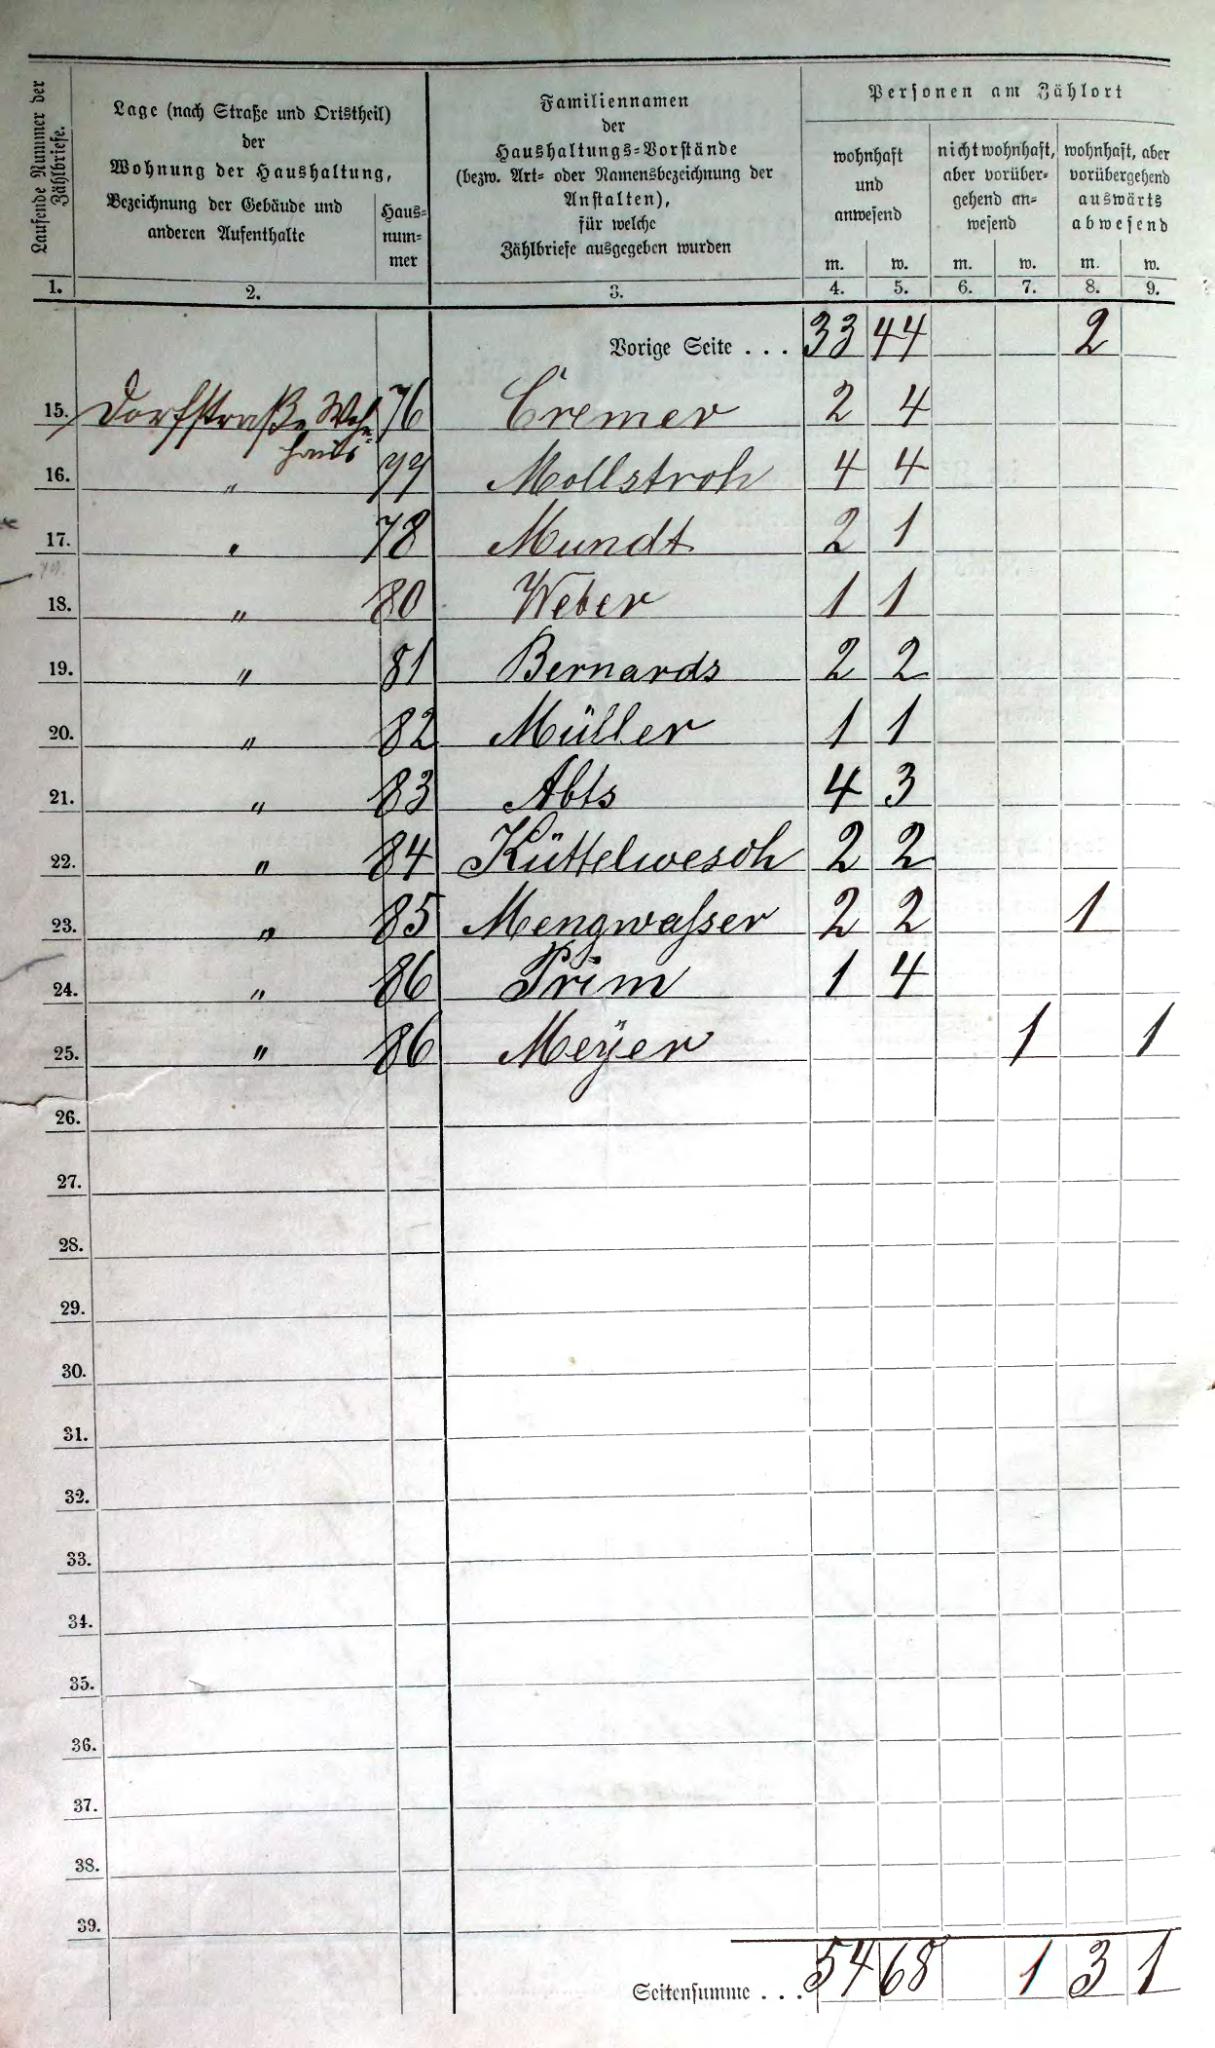 Laufende Nummer der Zählbriefe.
Lage (nach Straße und Ortstheil)
der
Wohnung der Haushaltung,
Bezeichnung der Gebäude und
anderen Aufenthalte
Haus=
num=
mer
Familiennamen
der
Haushaltungs=Vorstände
(bezw. Art= oder Namensbezeichnung der
Anstalten),
für welche
Zählbriefe ausgegeben wurden
Personen am Zählort
wohnhaft
und
anwesend
nicht wohnhaft,
aber vorüber=
gehend an=
wesend
wohnhaft, aber
vorübergehend
auswärts
abwesend
m. w. m. w. m. w.
1. 2. 3. 4. 5. 6. 7. 8. 9.
Vorige Seite . . . 33 44 2
15. Dorfstraße Wohn= 76 Cremer 2 4
haus
16. " 77 Mollstroh 4 4
17. " 78 Mundt 2 1
18. " 80 Weber 1 1
19. " 81 Bernards 2 2
20. " 82 Müller 1 1
21. " 83 Abts 4 3
22. " 84 Küttelwesch 2 2
23. " 85 Mengwasser 2 2 1
24. " 86 Prim 1 4
25. " 86 Meÿer 1 1
26.
27.
28.
29.
30.
31.
32.
33.
34.
35.
36.
37.
38.
39.
Seitensumme . . . 54 68 1 3 1